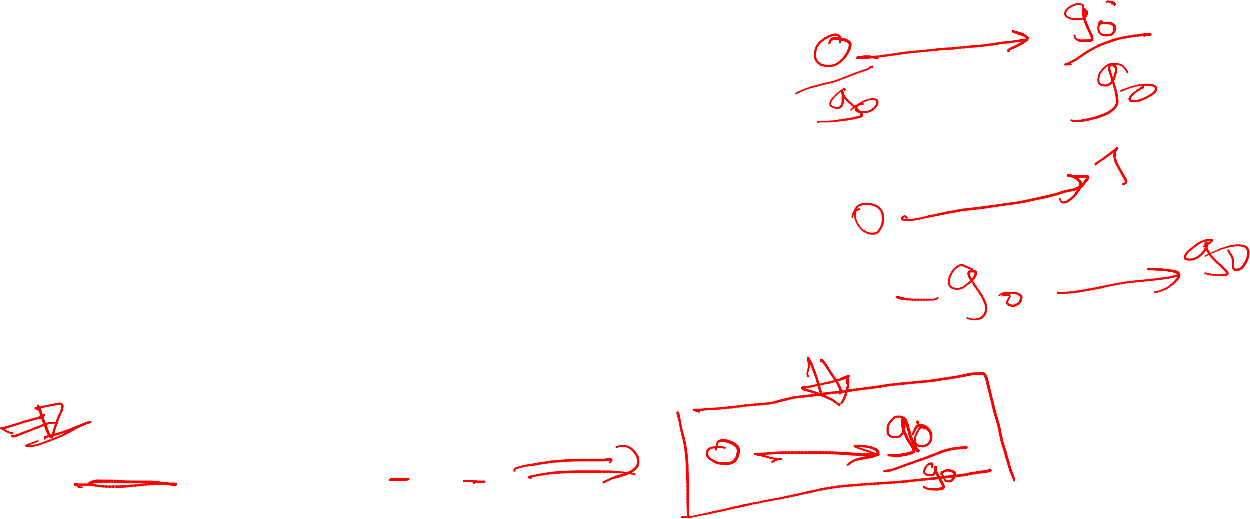 0/90 → 90/90
0 → 1
- 90 → 90
⇒
— - - ⇒ 0 → 90/90